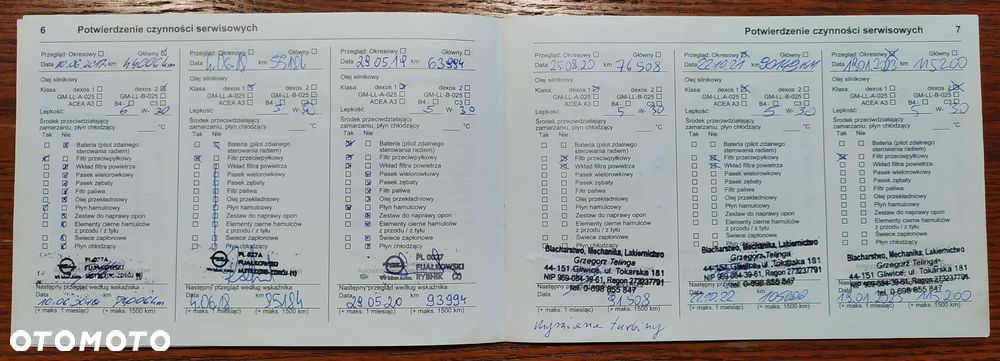 6 Potwierdzenie czynności serwisowych
Przegląd: Okresowy Główny
Data 10.06.2017 km 44006km
Olej silnikowy
Klasa: dexos 1 dexos 2
GM-LL-A-025 GM-LL-B-025
ACEA A3 B4 C3
Lepkość: 5 W- 30
Środek przeciwdziałający
zamarzaniu, płyn chłodzący °C
Tak Nie
Bateria (pilot zdalnego
sterowania radiem)
Filtr przeciwpyłkowy
Wkład filtra powietrza
Pasek wielorowkowy
Pasek zębaty
Filtr paliwa
Olej przekładniowy
Płyn hamulcowy
Zestaw do naprawy opon
Elementy cierne hamulców
z przodu / z tyłu
Świece zapłonowe
Płyn chłodzący
PL 027A
FIJAŁKOWSKI
Następny przegląd według wskaźnika
(+ maks. 1 miesiąc) (+ maks. 1500 km)
Przegląd: Okresowy Główny
Data km
Olej silnikowy
Klasa: dexos 1 dexos 2
GM-LL-A-025 GM-LL-B-025
ACEA A3 B4 C3
Lepkość: 5 W- 30
Środek przeciwdziałający
zamarzaniu, płyn chłodzący °C
Tak Nie
Bateria (pilot zdalnego
sterowania radiem)
Filtr przeciwpyłkowy
Wkład filtra powietrza
Pasek wielorowkowy
Pasek zębaty
Filtr paliwa
Olej przekładniowy
Płyn hamulcowy
Zestaw do naprawy opon
Elementy cierne hamulców
z przodu / z tyłu
Świece zapłonowe
Płyn chłodzący
PL 027A
FIJAŁKOWSKI
Następny przegląd według wskaźnika
(+ maks. 1 miesiąc) (+ maks. 1500 km)
Przegląd: Okresowy Główny
Data 29.05.19 km 63994
Olej silnikowy
Klasa: dexos 1 dexos 2
GM-LL-A-025 GM-LL-B-025
ACEA A3 B4 C3
Lepkość: 5 W- 30
Środek przeciwdziałający
zamarzaniu, płyn chłodzący °C
Tak Nie
Bateria (pilot zdalnego
sterowania radiem)
Filtr przeciwpyłkowy
Wkład filtra powietrza
Pasek wielorowkowy
Pasek zębaty
Filtr paliwa
Olej przekładniowy
Płyn hamulcowy
Zestaw do naprawy opon
Elementy cierne hamulców
z przodu / z tyłu
Świece zapłonowe
Płyn chłodzący
PL 0027
FIJAŁKOWSKI
RYBNIK
Następny przegląd według wskaźnika
29.05.20 93994
(+ maks. 1 miesiąc) (+ maks. 1500 km)
Potwierdzenie czynności serwisowych 7
Przegląd: Okresowy Główny
Data 25.08.20 km 76508
Olej silnikowy
Klasa: dexos 1 dexos 2
GM-LL-A-025 GM-LL-B-025
ACEA A3 B4 C3
Lepkość: 5 W- 30
Środek przeciwdziałający
zamarzaniu, płyn chłodzący °C
Tak Nie
Bateria (pilot zdalnego
sterowania radiem)
Filtr przeciwpyłkowy
Wkład filtra powietrza
Pasek wielorowkowy
Pasek zębaty
Filtr paliwa
Olej przekładniowy
Płyn hamulcowy
Zestaw do naprawy opon
Elementy cierne hamulców
z przodu / z tyłu
Świece zapłonowe
Blacharstwo, Mechanika, Lakiernictwo
Grzegorz Telinga
44-151 Gliwice, ul. Tokarska 181
NIP 969-084-39-61, Regon 273237791
tel. 0-698 855 847
91508
(+ maks. 1 miesiąc) (+ maks. 1500 km)
Wymiana turbiny
Przegląd: Okresowy Główny
Data 22.10.21 km
Olej silnikowy
Klasa: dexos 1 dexos 2
GM-LL-A-025 GM-LL-B-025
ACEA A3 B4 C3
Lepkość: 5 W- 30
Środek przeciwdziałający
zamarzaniu, płyn chłodzący °C
Tak Nie
Bateria (pilot zdalnego
sterowania radiem)
Filtr przeciwpyłkowy
Wkład filtra powietrza
Pasek wielorowkowy
Pasek zębaty
Filtr paliwa
Olej przekładniowy
Płyn hamulcowy
Zestaw do naprawy opon
Elementy cierne hamulców
z przodu / z tyłu
Blacharstwo, Mechanika, Lakiernictwo
Grzegorz Telinga
44-151 Gliwice, ul. Tokarska 181
NIP 969-084-39-61, Regon 273237791
tel. 0-698 855 847
Następny przegląd według wskaźnika
22.10.22 105000
(+ maks. 1 miesiąc) (+ maks. 1500 km)
Przegląd: Okresowy Główny
Data 19.01.2023 km 115200
Olej silnikowy
Klasa: dexos 1 dexos 2
GM-LL-A-025 GM-LL-B-025
ACEA A3 B4 C3
Lepkość: 5 W- 30
Środek przeciwdziałający
zamarzaniu, płyn chłodzący °C
Tak Nie
Bateria (pilot zdalnego
sterowania radiem)
Filtr przeciwpyłkowy
Wkład filtra powietrza
Pasek wielorowkowy
Pasek zębaty
Filtr paliwa
Olej przekładniowy
Płyn hamulcowy
Zestaw do naprawy opon
Elementy cierne hamulców
z przodu / z tyłu
Blacharstwo, Mechanika, Lakiernictwo
Grzegorz Telinga
44-151 Gliwice, ul. Tokarska 181
NIP 969-084-39-61, Regon 273237791
tel. 0-698 855 847
19.01.2023 115200
(+ maks. 1 miesiąc) (+ maks. 1500 km)
OTOMOTO